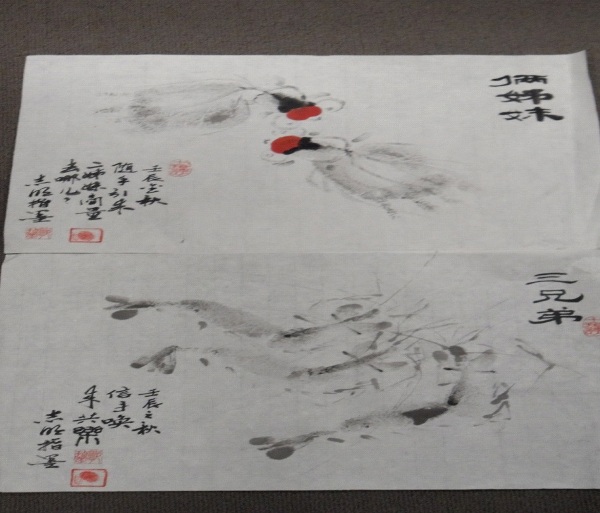 俩姊妹
壬辰金秋
随手引来
二姊妹商量
去哪儿?
志明指墨
三兄弟
壬辰之秋
信手唤
来共跃
志明指墨